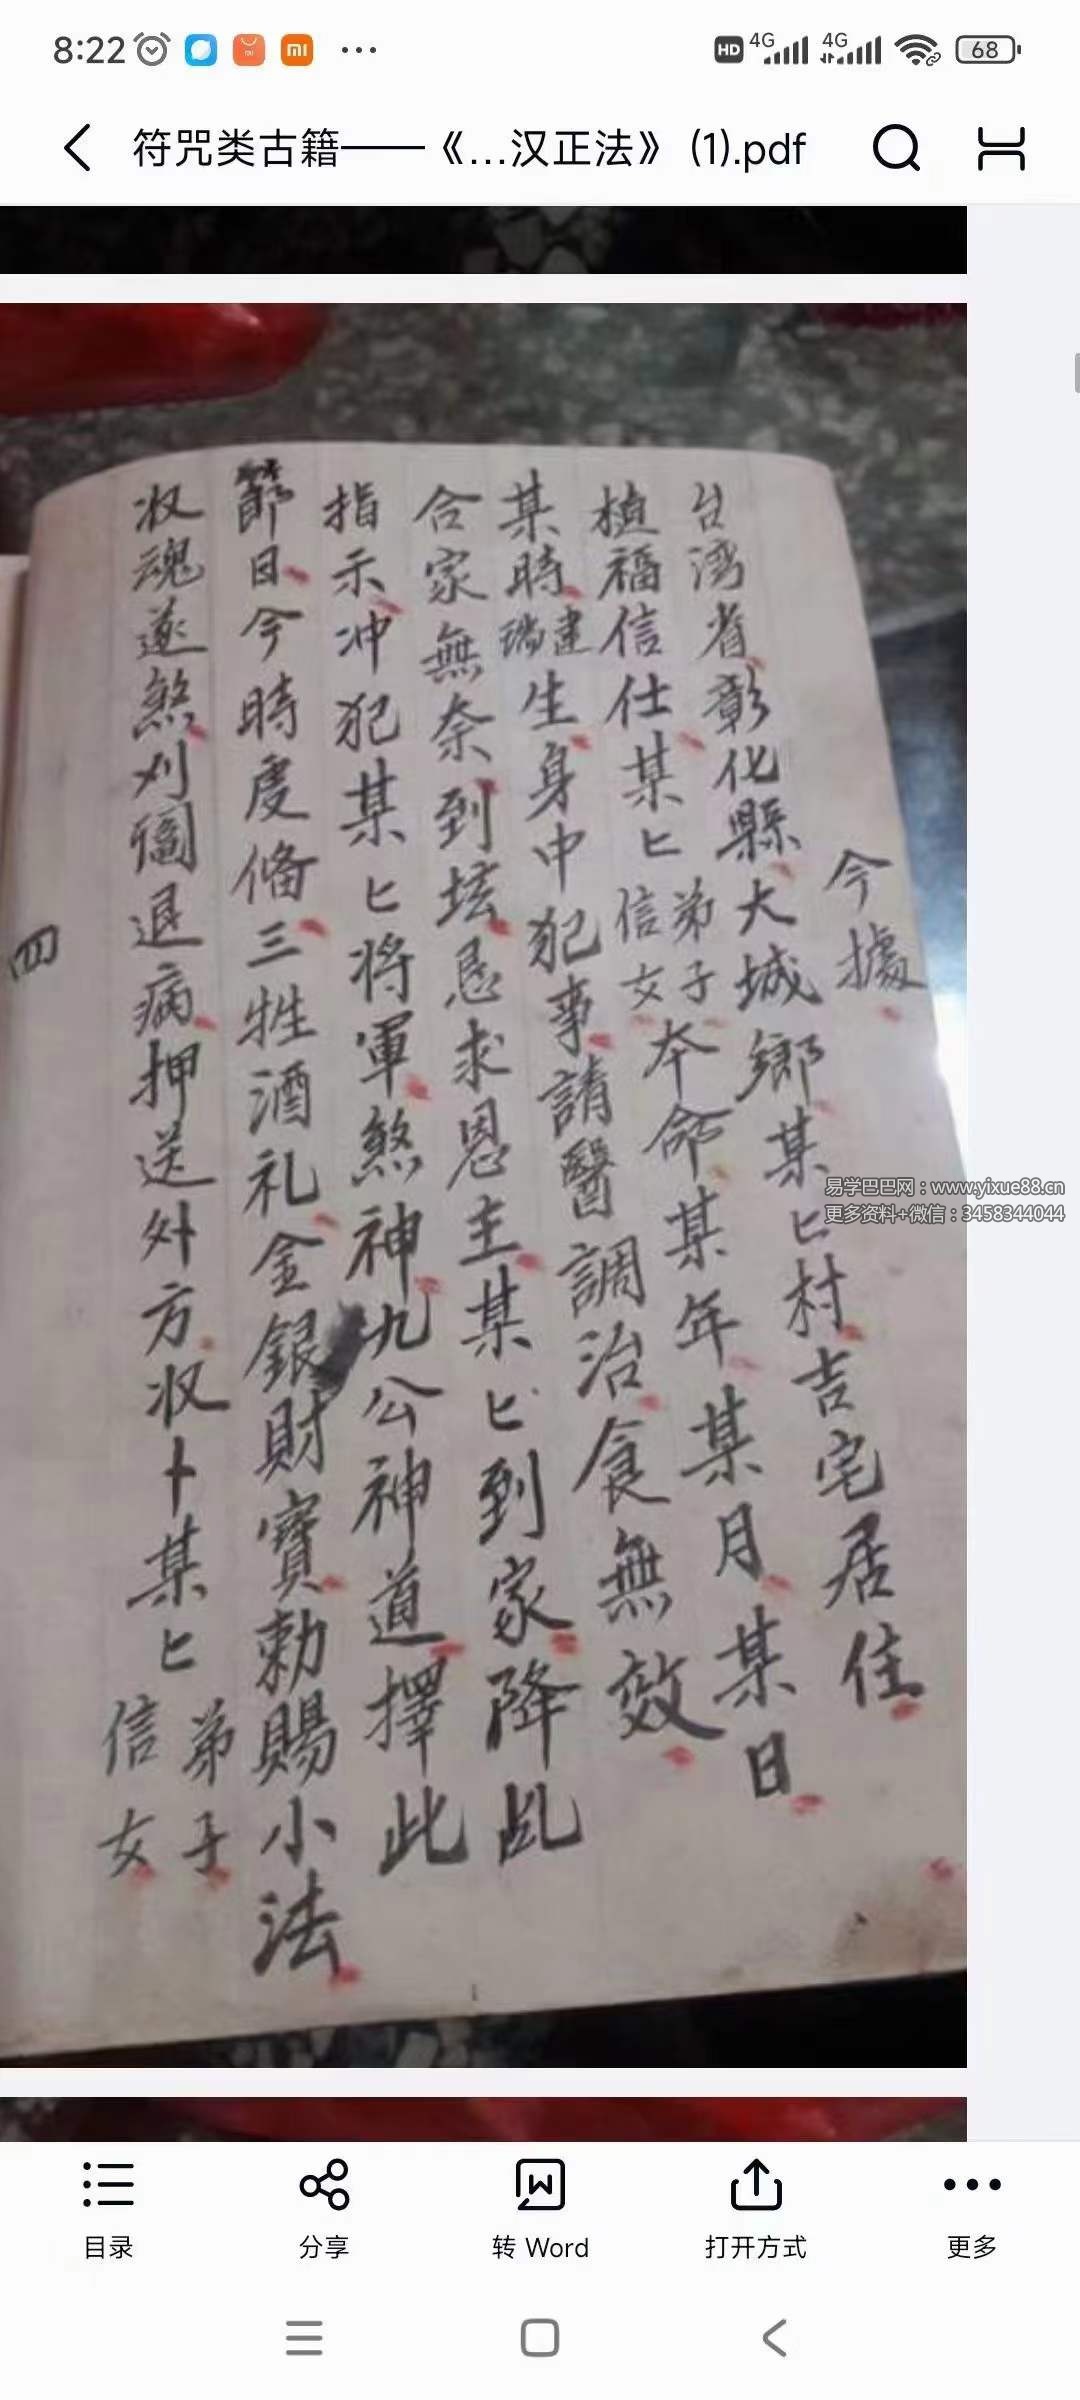 8:22
HD 4G 4G 68
符咒类古籍——《...汉正法》 (1).pdf
今據
台湾省彰化縣大城鄉某匕村吉宅居住
植福信仕某匕弟子信女本命某年某月某日
某時瑞建生身中犯事請醫調治食無效
合家無奈到坛恳求恩主某匕到家降乩
指示冲犯某匕将軍煞神九公神道擇此
節日今時虔俻三牲酒礼金銀財寶勅賜小法
収魂遂煞刈退病押送外方収某匕弟子信女
四
易学巴巴网：www.yixue88.cn
更多资料+微信：3458344044
目录
分享
转 Word
打开方式
更多